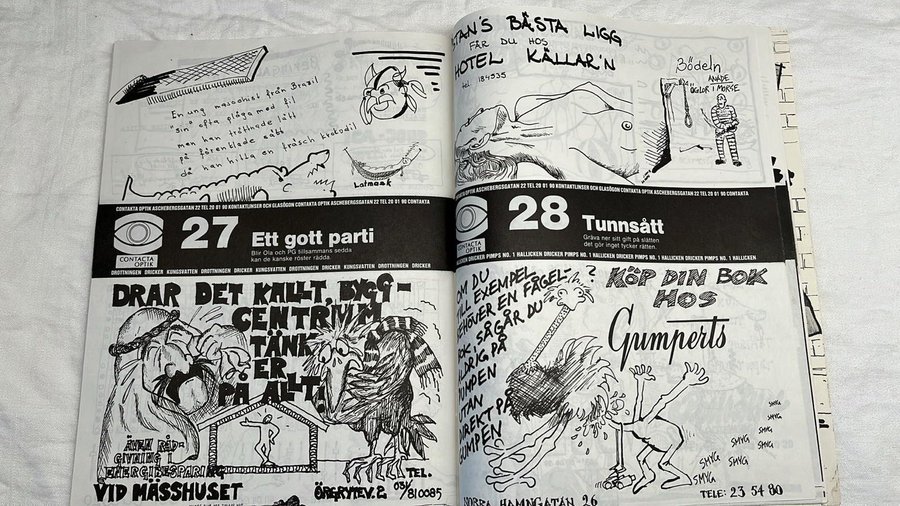 En ung masochist från Brazil
"sin" ofta plåga med fil
men han tröttnade lätt
på förenklade sätt
då han killa en fräsch krokodil
Latmask
CONTAKTA OPTIK ASCHEBERGSGATAN 22 TEL 20 01 90 KONTAKTLINSER OCH GLASÖGON CONTAKTA OPTIK ASCHEBERGSGATAN 22 TEL 20 01 90 CONTAKTA
CONTACTA
OPTIK
27 Ett gott parti
Blir Ola och PG tillsammans sedda
kan de kanske röster rädda.
DROTTNINGEN DRICKER KUNGSVATTEN DROTTNINGEN DRICKER KUNGSVATTEN DROTTNINGEN DRICKER KUNGSVATTEN DROTTNINGEN DRICKER
DRAR DET KALLT, BYGG-
CENTRUM
TÄNK
ER
PÅ ALLT!
ÄVEN RÅD-
GIVNING I
ENERGIBESPARING
VID MÄSSHUSET
ÖRGRYTEV. 2
TEL.
031/
810085
TAN'S BÄSTA LIGG
FÅR DU HOS
HOTEL KÄLLAR'N
tel. 184535
Bödeln
ANADE
ÖGLOR I MORSE
CONTAKTA OPTIK ASCHEBERGSGATAN 22 TEL 20 01 90 KONTAKTLINSER OCH GLASÖGON CONTAKTA OPTIK ASCHEBERGSGATAN 22 TEL 20 01 90 CONTAKTA
CONTACTA
OPTIK
28 Tunnsått
Gräva ner sitt gift på slätten
det gör inget tycker rätten.
HALLICKEN DRICKER PIMPS NO. 1 HALLICKEN DRICKER PIMPS NO. 1 HALLICKEN DRICKER PIMPS NO. 1 HALLICKEN DRICKER PIMPS NO. 1 HALLICKEN
OM DU
TILL EXEMPEL
BEHÖVER EN FÅGEL-
BOK, SÅ GÅR DU
ALDRIG PÅ
GUMPEN
UTAN
DIREKT PÅ
GUMPEN
?
KÖP DIN BOK
HOS
Gumperts
SMYG
SMYG
SMYG
SMYG
SMYG
SMYG
SMYG
SMYG
NORRA HAMNGATAN 26
TELE: 23 54 80